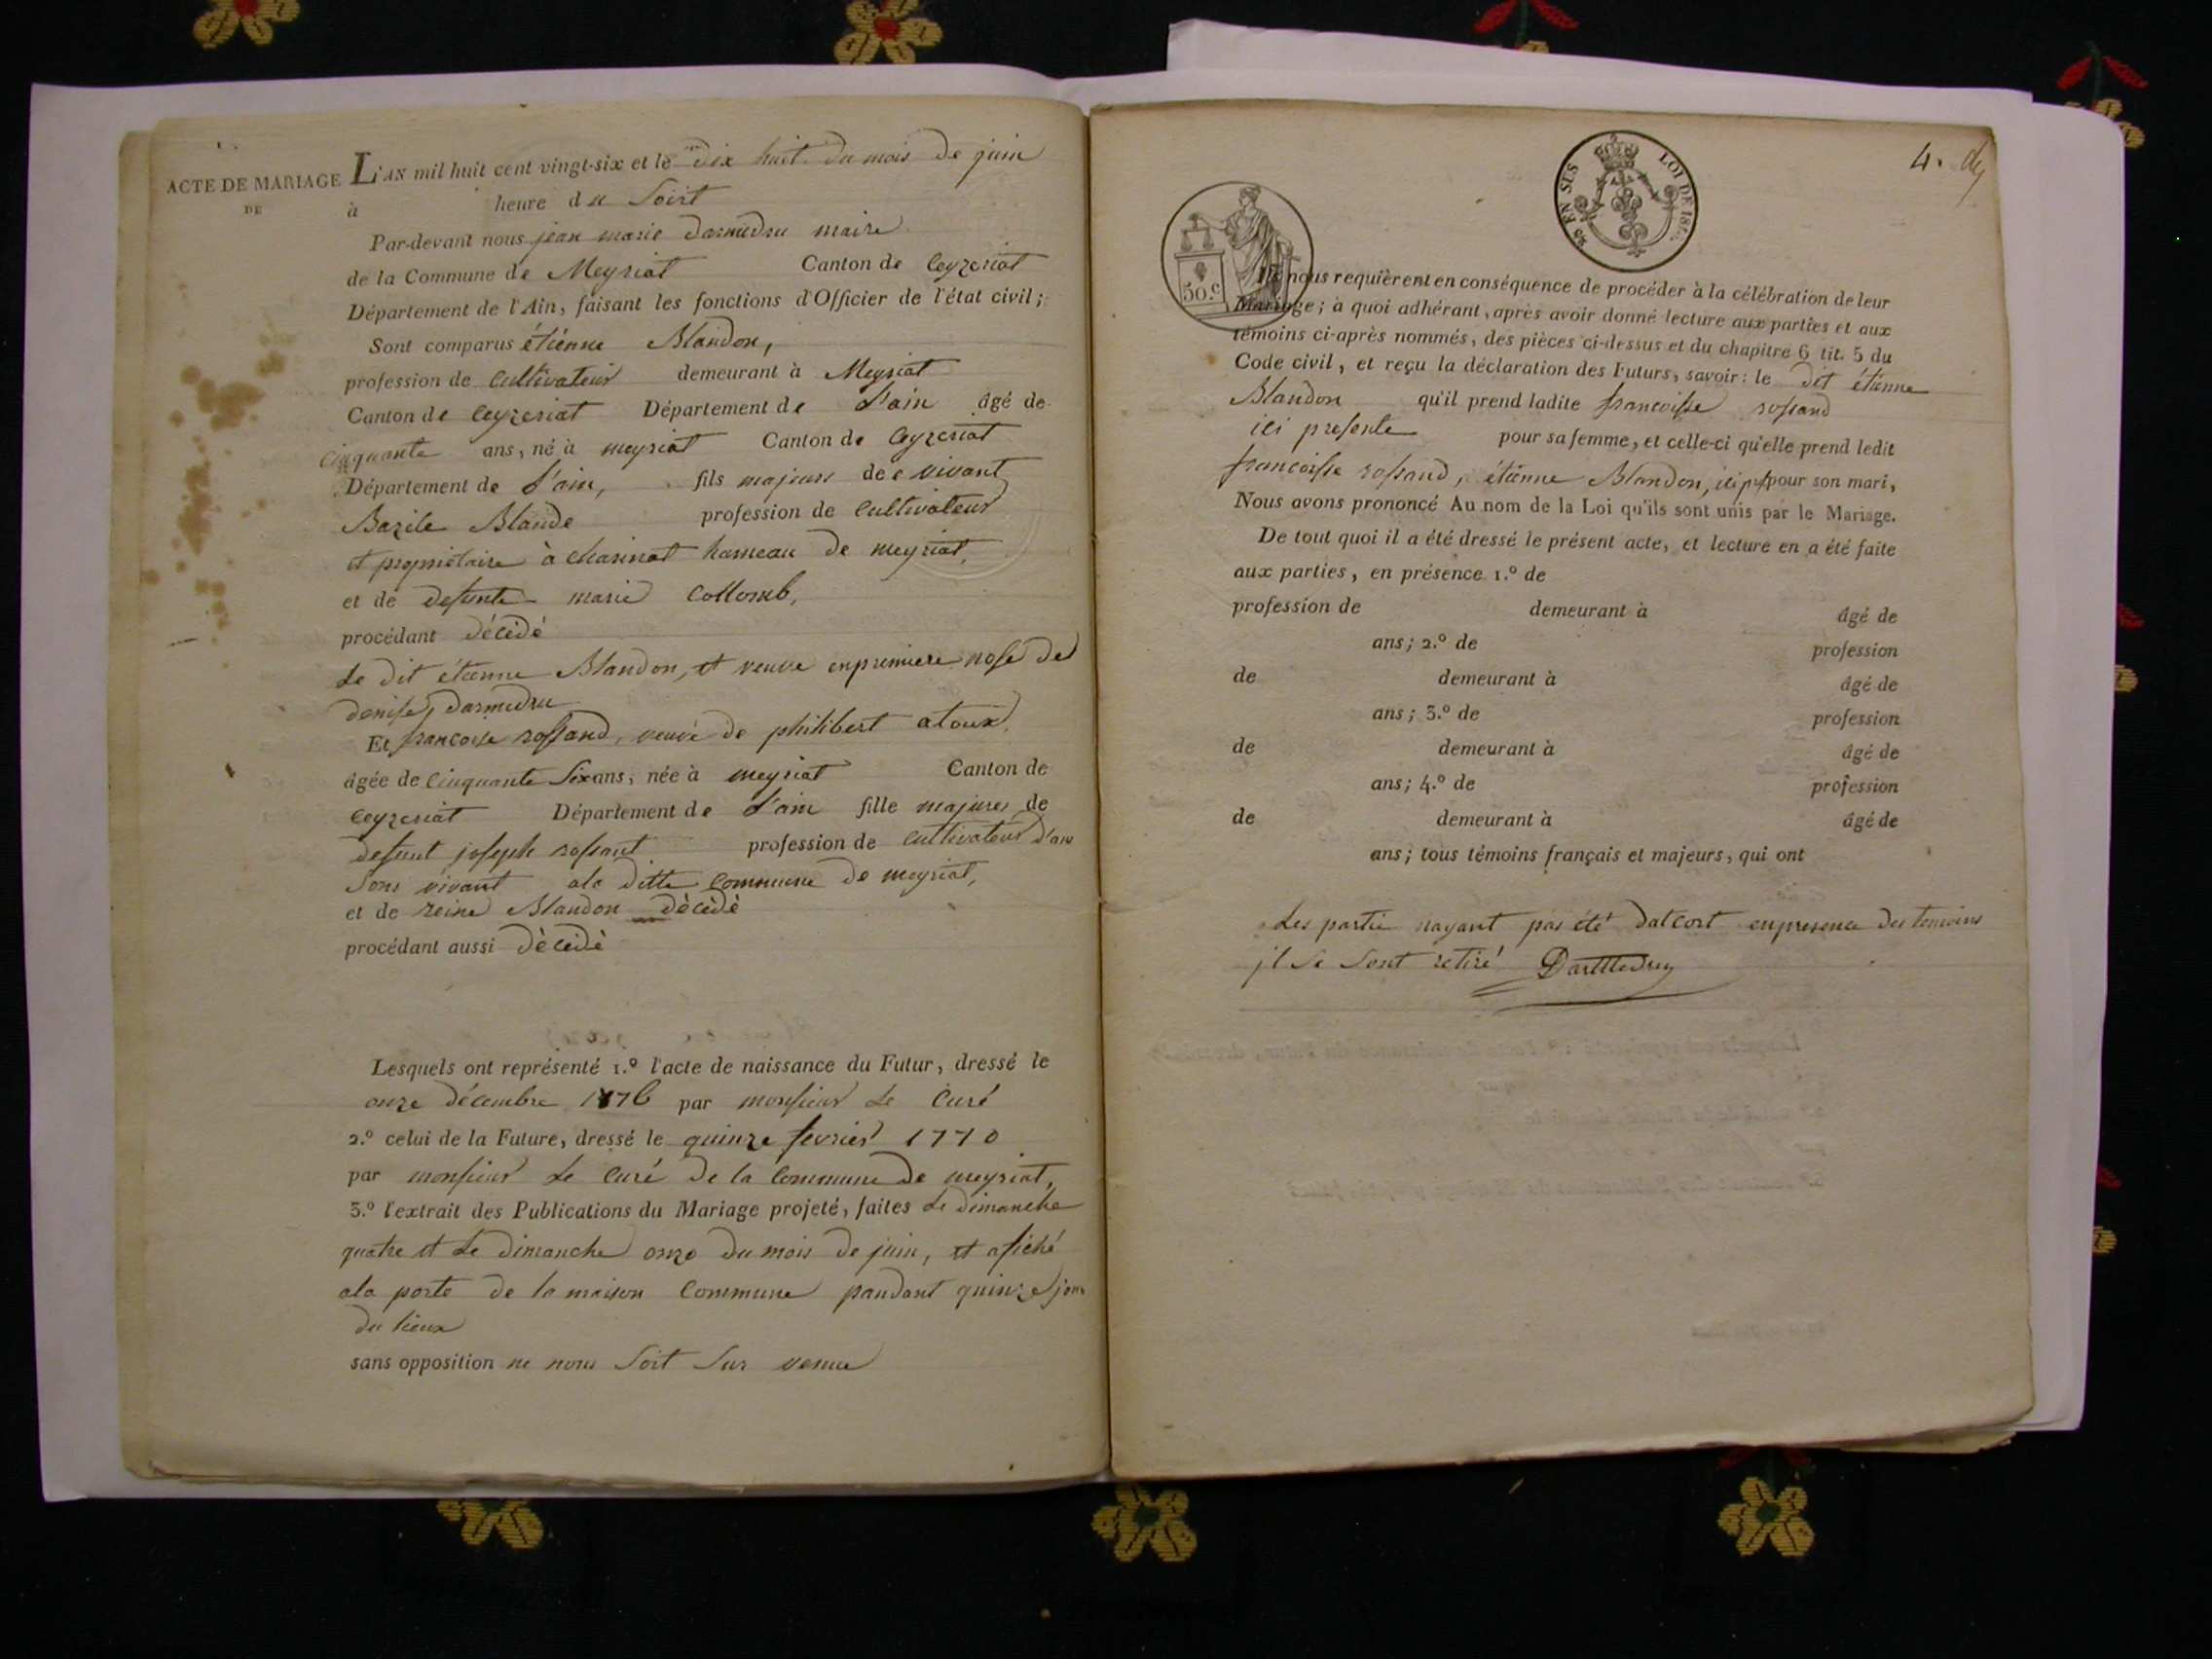 ACTE DE MARIAGE
DE
L'AN mil huit cent vingt-six et le dix huit du mois de juin
à heure du Soirt
Par-devant nous jean marie darmedru maire
de la Commune de Meyriat Canton de Ceyzeriat
Département de l'Ain, faisant les fonctions d'Officier de l'état civil;
Sont comparus étienne Blandon,
profession de Cultivateur demeurant à Meyriat
Canton de Ceyzeriat Département de L'ain âgé de
cinquante ans, né à meyriat Canton de Ceyzeriat
Département de L'ain, fils majeur de vivant
Bazile Blande profession de Cultivateur
et propriétaire à charinat hameau de meyriat,
et de defunte marie Collomb,
procédant décédé
Le dit étienne Blandon, et veuve enpremiere nose de
denise, darmedru
Et francoise rossand, veuve de philibert atoux,
âgée de Cinquante Six ans, née à meyriat Canton de
Ceyzeriat Département de L'ain fille majeure de
defunt joseph rossant profession de Cultivateur d'an
Sons vivant ala ditte Commune de meyriat,
et de reine Blandon décèdè
procédant aussi dècèdè
Lesquels ont représenté 1.º l'acte de naissance du Futur, dressé le
onze décembre 1776 par monsieur Le Curé
2.º celui de la Future, dressé le quinze fevrier 1770
par monsieur Le Curé de la Commune de meyriat,
3.º l'extrait des Publications du Mariage projeté, faites Le dimanche
quatre et Le dimanche onze du mois de juin, et afiché
ala porte de la maison Commune pandant quinze jour
du lieux
sans opposition ne nous Soit Sur venue
4.
50.c
EN SUS
LOI DE
Ils nous requièrent en conséquence de procéder à la célébration de leur
Mariage; à quoi adhérant, après avoir donné lecture aux parties et aux
témoins ci-après nommés, des pièces ci-dessus et du chapitre 6 tit. 5 du
Code civil, et reçu la déclaration des Futurs, savoir: le dit étienne
Blandon qu'il prend ladite francoisse rossand
ici presente pour sa femme, et celle-ci qu'elle prend ledit
francoisse rossand, étienne Blandon, ici pour son mari,
Nous avons prononcé Au nom de la Loi qu'ils sont unis par le Mariage.
De tout quoi il a été dressé le présent acte, et lecture en a été faite
aux parties, en présence 1.º de
profession de demeurant à âgé de
ans; 2.º de profession
de demeurant à âgé de
ans; 3.º de profession
de demeurant à âgé de
ans; 4.º de profession
de demeurant à âgé de
ans; tous témoins français et majeurs, qui ont
Les partie nayant pas été datcort enpresence des temoins
jl Se Sont retiré Darmedru